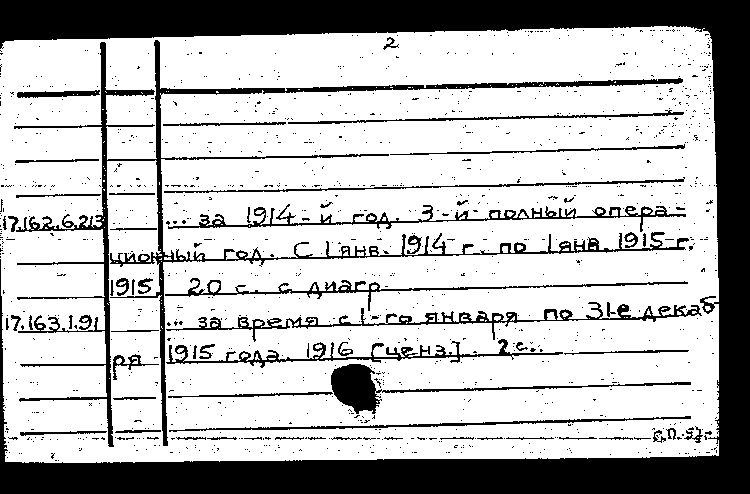 2
17.162.6.213 ... за 1914-й год. 3-й полный опера-
ционный год. С 1 янв. 1914 г. по 1 янв. 1915 г.
1915. 20 с. с диагр.
17.163.1.91 ... за время с 1-го января по 31-е декаб-
ря 1915 года. 1916 [ценз.]. 2 с.